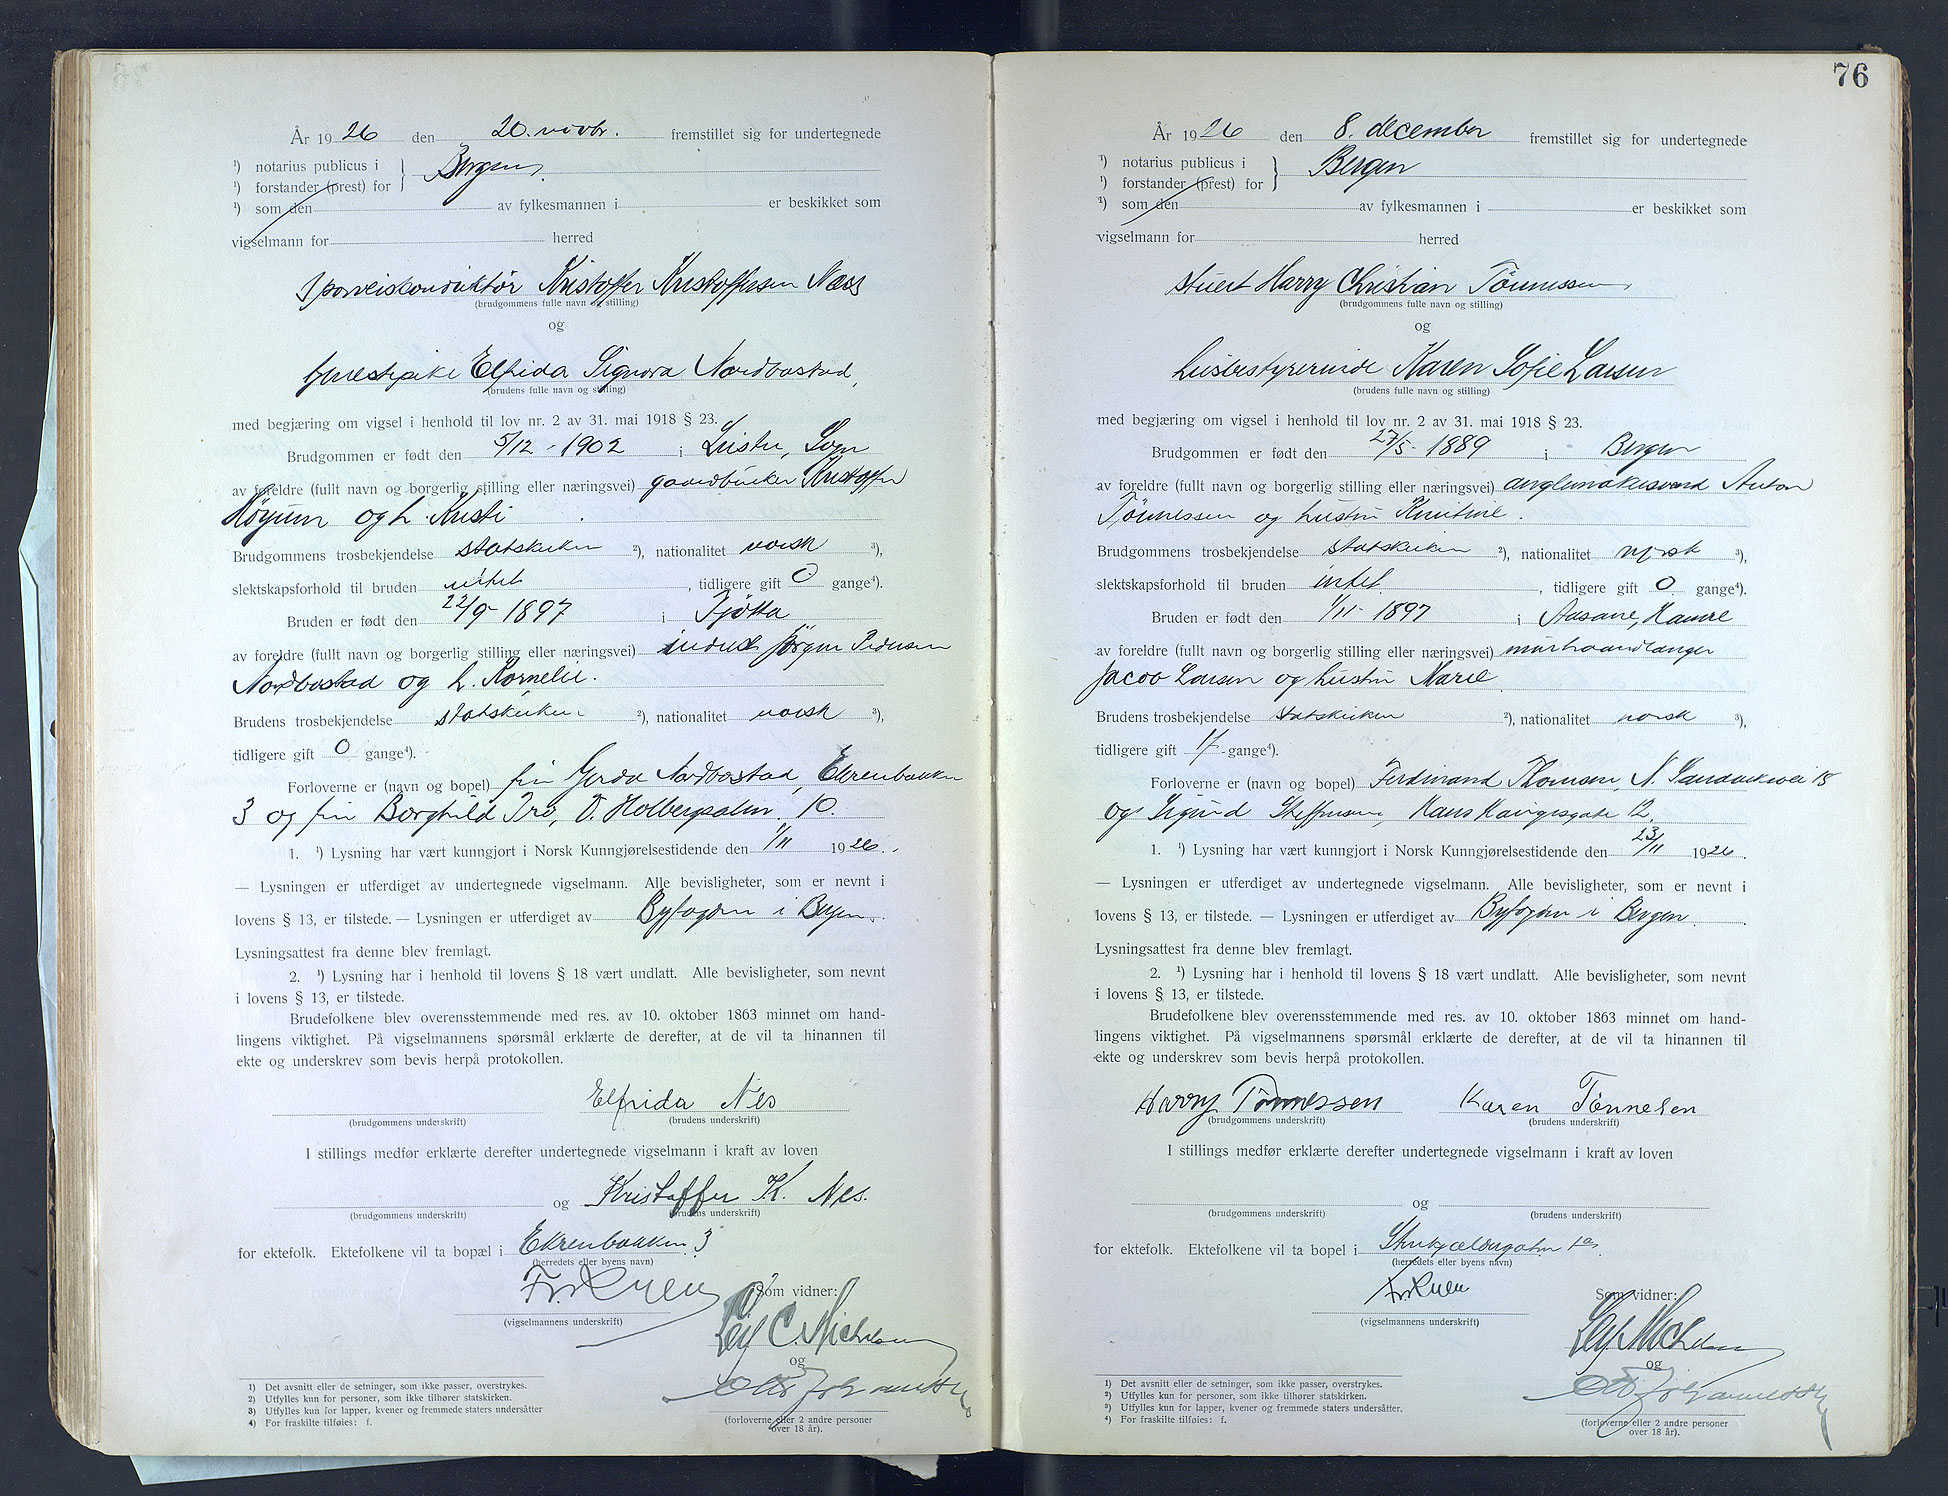 År 1926 den 20. novbr. fremstillet sig for undertegnede
¹) notarius publicus i } Bergen
¹) forstander (prest) for
¹) som den av fylkesmannen i er beskikket som
vigselmann for herred
Sporveiskonduktör Kristoffer Kristoffersen Næss
(brudgommens fulle navn og stilling)
og
tjenestepike Elfrida Signora Nordbostad,
(brudens fulle navn og stilling)
med begjæring om vigsel i henhold til lov nr. 2 av 31. mai 1918 § 23.
Brudgommen er født den 5/12 - 1902 i Luster, Sogn
av foreldre (fullt navn og borgerlig stilling eller næringsvei) gaardbruker Kristoffer
og h. Kristi
Brudgommens trosbekjendelse statskirken ²), nationalitet norsk ³),
slektskapsforhold til bruden intet, tidligere gift 0 gange⁴).
Bruden er født den 22/9 - 1897 i Tjötta
av foreldre (fullt navn og borgerlig stilling eller næringsvei) Jörgen Pedersen
Nordbostad og h. Kornelie.
Brudens trosbekjendelse statskirken ²), nationalitet norsk ³),
tidligere gift 0 gange⁴).
Forloverne er (navn og bopel) frk Gerda Nordbostad, Ekrenbakken
3 og frk Borghild Tro, D. Holbergsalm. 10.
1. ¹) Lysning har vært kunngjort i Norsk Kunngjørelsestidende den 1/11 1926.
— Lysningen er utferdiget av undertegnede vigselmann. Alle bevisligheter, som er nevnt i
lovens § 13, er tilstede. — Lysningen er utferdiget av Byfogden i Bergen.
Lysningsattest fra denne blev fremlagt.
2. ¹) Lysning har i henhold til lovens § 18 vært undlatt. Alle bevisligheter, som nevnt
i lovens § 13, er tilstede.
Brudefolkene blev overensstemmende med res. av 10. oktober 1863 minnet om hand-
lingens viktighet. På vigselmannens spørsmål erklærte de derefter, at de vil ta hinannen til
ekte og underskrev som bevis herpå protokollen.
Elfrida Nes
(brudgommens underskrift) (brudens underskrift)
I stillings medfør erklærte derefter undertegnede vigselmann i kraft av loven
og Kristoffer K. Nes.
(brudgommens underskrift) (brudens underskrift)
for ektefolk. Ektefolkene vil ta bopæl i Ekrenbakken 3
(herredets eller byens navn)
Som vidner:
(vigselmannens underskrift)
Leif C. Michelsen
og
(forloverne eller 2 andre personer
over 18 år).
1) Det avsnitt eller de setninger, som ikke passer, overstrykes.
2) Utfylles kun for personer, som ikke tilhører statskirken.
3) Utfylles kun for lapper, kvener og fremmede staters undersåtter
4) For fraskilte tilføies: f.
76
År 1926 den 8. december fremstillet sig for undertegnede
¹) notarius publicus i } Bergen
¹) forstander (prest) for
¹) som den av fylkesmannen i er beskikket som
vigselmann for herred
stuert Harry Christian Tönnessen
(brudgommens fulle navn og stilling)
og
husbestyrerinde Karen Sofie Larsen
(brudens fulle navn og stilling)
med begjæring om vigsel i henhold til lov nr. 2 av 31. mai 1918 § 23.
Brudgommen er født den 27/5 - 1889 i Bergen
av foreldre (fullt navn og borgerlig stilling eller næringsvei) Anton
Tönnessen og hustru
Brudgommens trosbekjendelse statskirken ²), nationalitet norsk ³),
slektskapsforhold til bruden intet, tidligere gift 0 gange⁴).
Bruden er født den 1/11 - 1897 i Aasane, Hamre
av foreldre (fullt navn og borgerlig stilling eller næringsvei) murhaandlanger
Jacob Larsen og hustru Marie
Brudens trosbekjendelse statskirken ²), nationalitet norsk ³),
tidligere gift gange⁴).
Forloverne er (navn og bopel) Ferdinand Thomsen, N. Sandviksvei 18
og Sigurd Steffensen, Hans Haugesgate 12.
1. ¹) Lysning har vært kunngjort i Norsk Kunngjørelsestidende den 23/11 1926.
— Lysningen er utferdiget av undertegnede vigselmann. Alle bevisligheter, som er nevnt i
lovens § 13, er tilstede. — Lysningen er utferdiget av Byfogden i Bergen.
Lysningsattest fra denne blev fremlagt.
2. ¹) Lysning har i henhold til lovens § 18 vært undlatt. Alle bevisligheter, som nevnt
i lovens § 13, er tilstede.
Brudefolkene blev overensstemmende med res. av 10. oktober 1863 minnet om hand-
lingens viktighet. På vigselmannens spørsmål erklærte de derefter, at de vil ta hinannen til
ekte og underskrev som bevis herpå protokollen.
Harry Tönnessen Karen Tönnesen
(brudgommens underskrift) (brudens underskrift)
I stillings medfør erklærte derefter undertegnede vigselmann i kraft av loven
og
(brudgommens underskrift) (brudens underskrift)
for ektefolk. Ektefolkene vil ta bopel i
(herredets eller byens navn)
Som vidner:
(vigselmannens underskrift)
Leif Michelsen
og
(forloverne eller 2 andre personer
over 18 år).
1) Det avsnitt eller de setninger, som ikke passer, overstrykes.
2) Utfylles kun for personer, som ikke tilhører statskirken.
3) Utfylles kun for lapper, kvener og fremmede staters undersåtter.
4) For fraskilte tilføies: f.